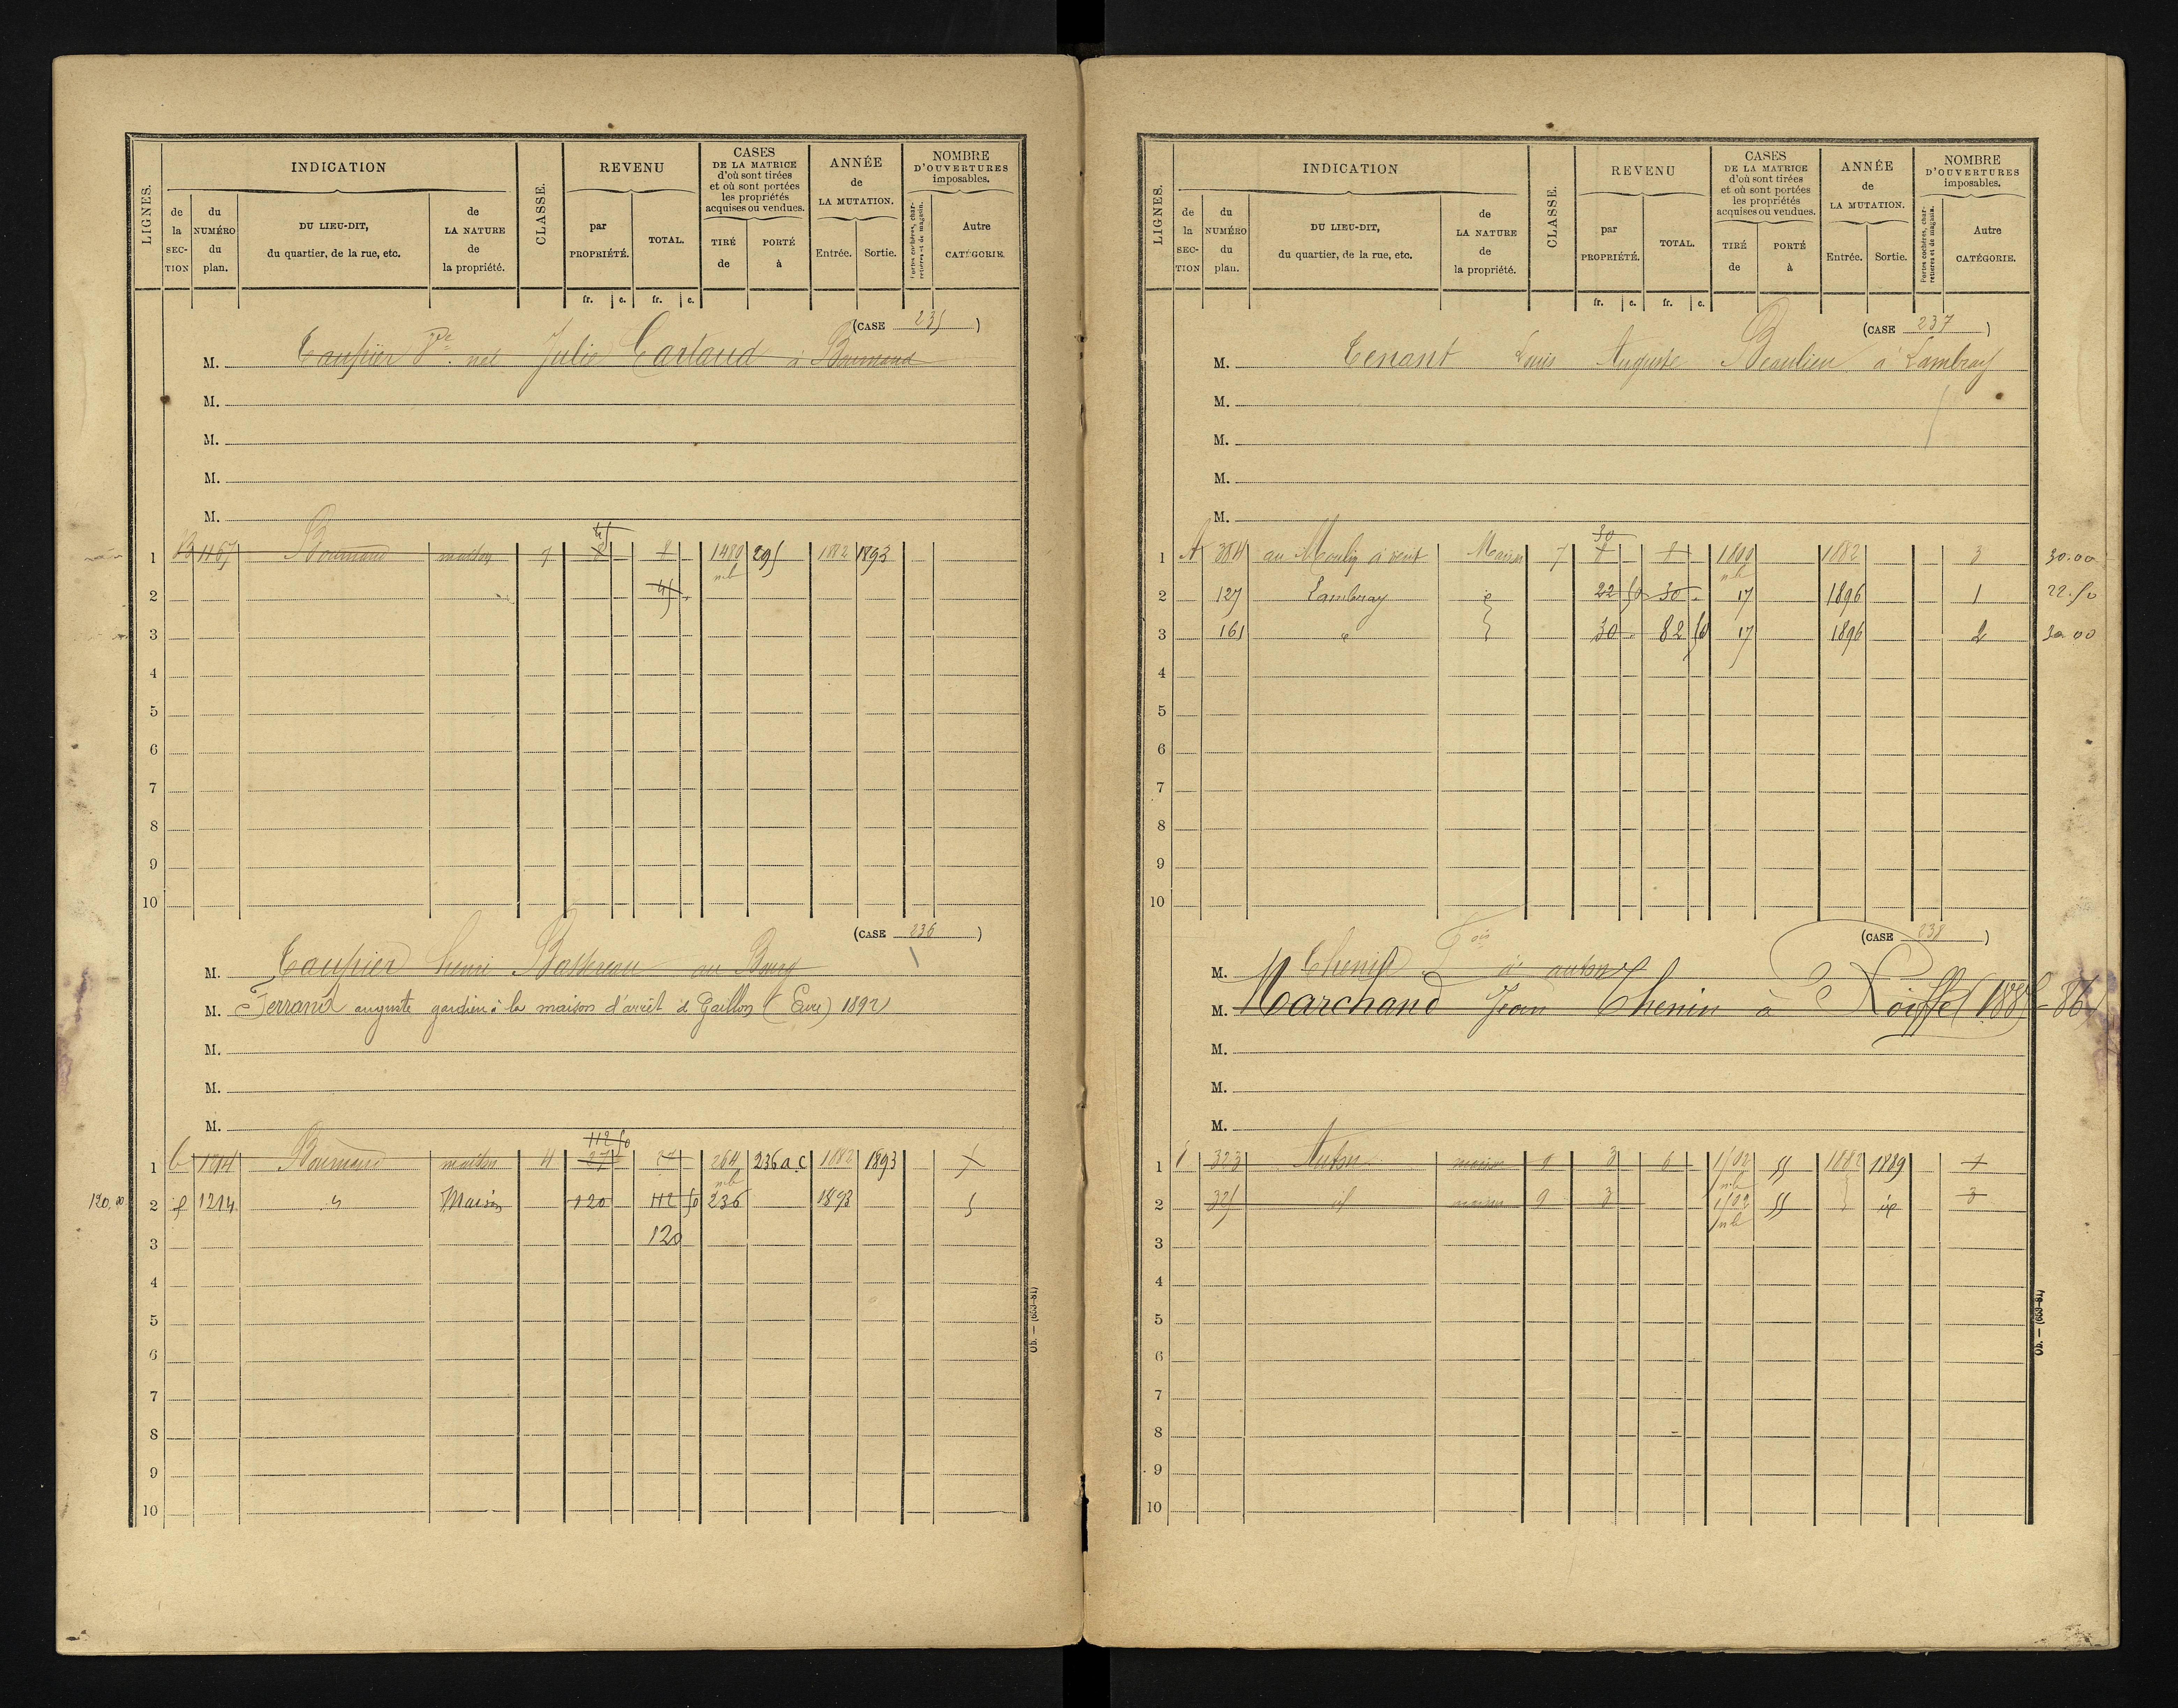 LIGNES.
INDICATION
de la SECTION
du NUMÉRO du plan.
DU LIEU-DIT, du quartier, de la rue, etc.
de LA NATURE de la propriété.
CLASSE.
REVENU
par PROPRIÉTÉ.
TOTAL.
fr. c. fr. c.
CASES DE LA MATRICE d'où sont tirées et où sont portées les propriétés acquises ou vendues.
TIRÉ de
PORTÉ à
ANNÉE de LA MUTATION.
Entrée. Sortie.
NOMBRE D'OUVERTURES imposables.
Portes cochères, charretières et de magasin.
Autre CATÉGORIE.
(CASE 235)
M. Taupier Julie Cartaud à Bournand
M.
M.
M.
M.
1 B 1167 Bournand maison 7 8 8 1480 295 1882 1893
45
2 45
3
4
5
6
7
8
9
10
(CASE 236)
M. Taupier henri au Bourg
M. Ferrand auguste gardien à la maison d'arrêt de Gaillon (Eure) 1892
M.
M.
M.
112 50
1 1214 Bournand maison 4 27 27 264 236 a c 1882 1893
120.00 2 1214 Maison 120 112 50 236 1893 5
3 120
4
5
6
7
8
9
10
Ob. — (699-81)
LIGNES.
INDICATION
de la SECTION
du NUMÉRO du plan.
DU LIEU-DIT, du quartier, de la rue, etc.
de LA NATURE de la propriété.
CLASSE.
REVENU
par PROPRIÉTÉ.
TOTAL.
fr. c. fr. c.
CASES DE LA MATRICE d'où sont tirées et où sont portées les propriétés acquises ou vendues.
TIRÉ de
PORTÉ à
ANNÉE de LA MUTATION.
Entrée. Sortie.
NOMBRE D'OUVERTURES imposables.
Portes cochères, charretières et de magasin.
Autre CATÉGORIE.
(CASE 237)
M. Tenant Louis Auguste Beaulieu à Lambray
M.
M.
M.
M.
30
1 A 384 au Moulin à vent Maison 7 8 8 1882 3 30.00
2 127 Lambray 22 50 30 17 1896 1 22.50
3 161 30 82 50 17 1896 2 30 00
4
5
6
7
8
9
10
(CASE 238)
M. Chenin Fois à auton
M. Marchand Jean Chenin à Roiffé (1885-86)
M.
M.
M.
1 323 Auton maison 9 3 6 1502 55 1882 1889 1
2 325 id maison 9 3 1502 55 3
3
4
5
6
7
8
9
10
Ob. — (699-81)